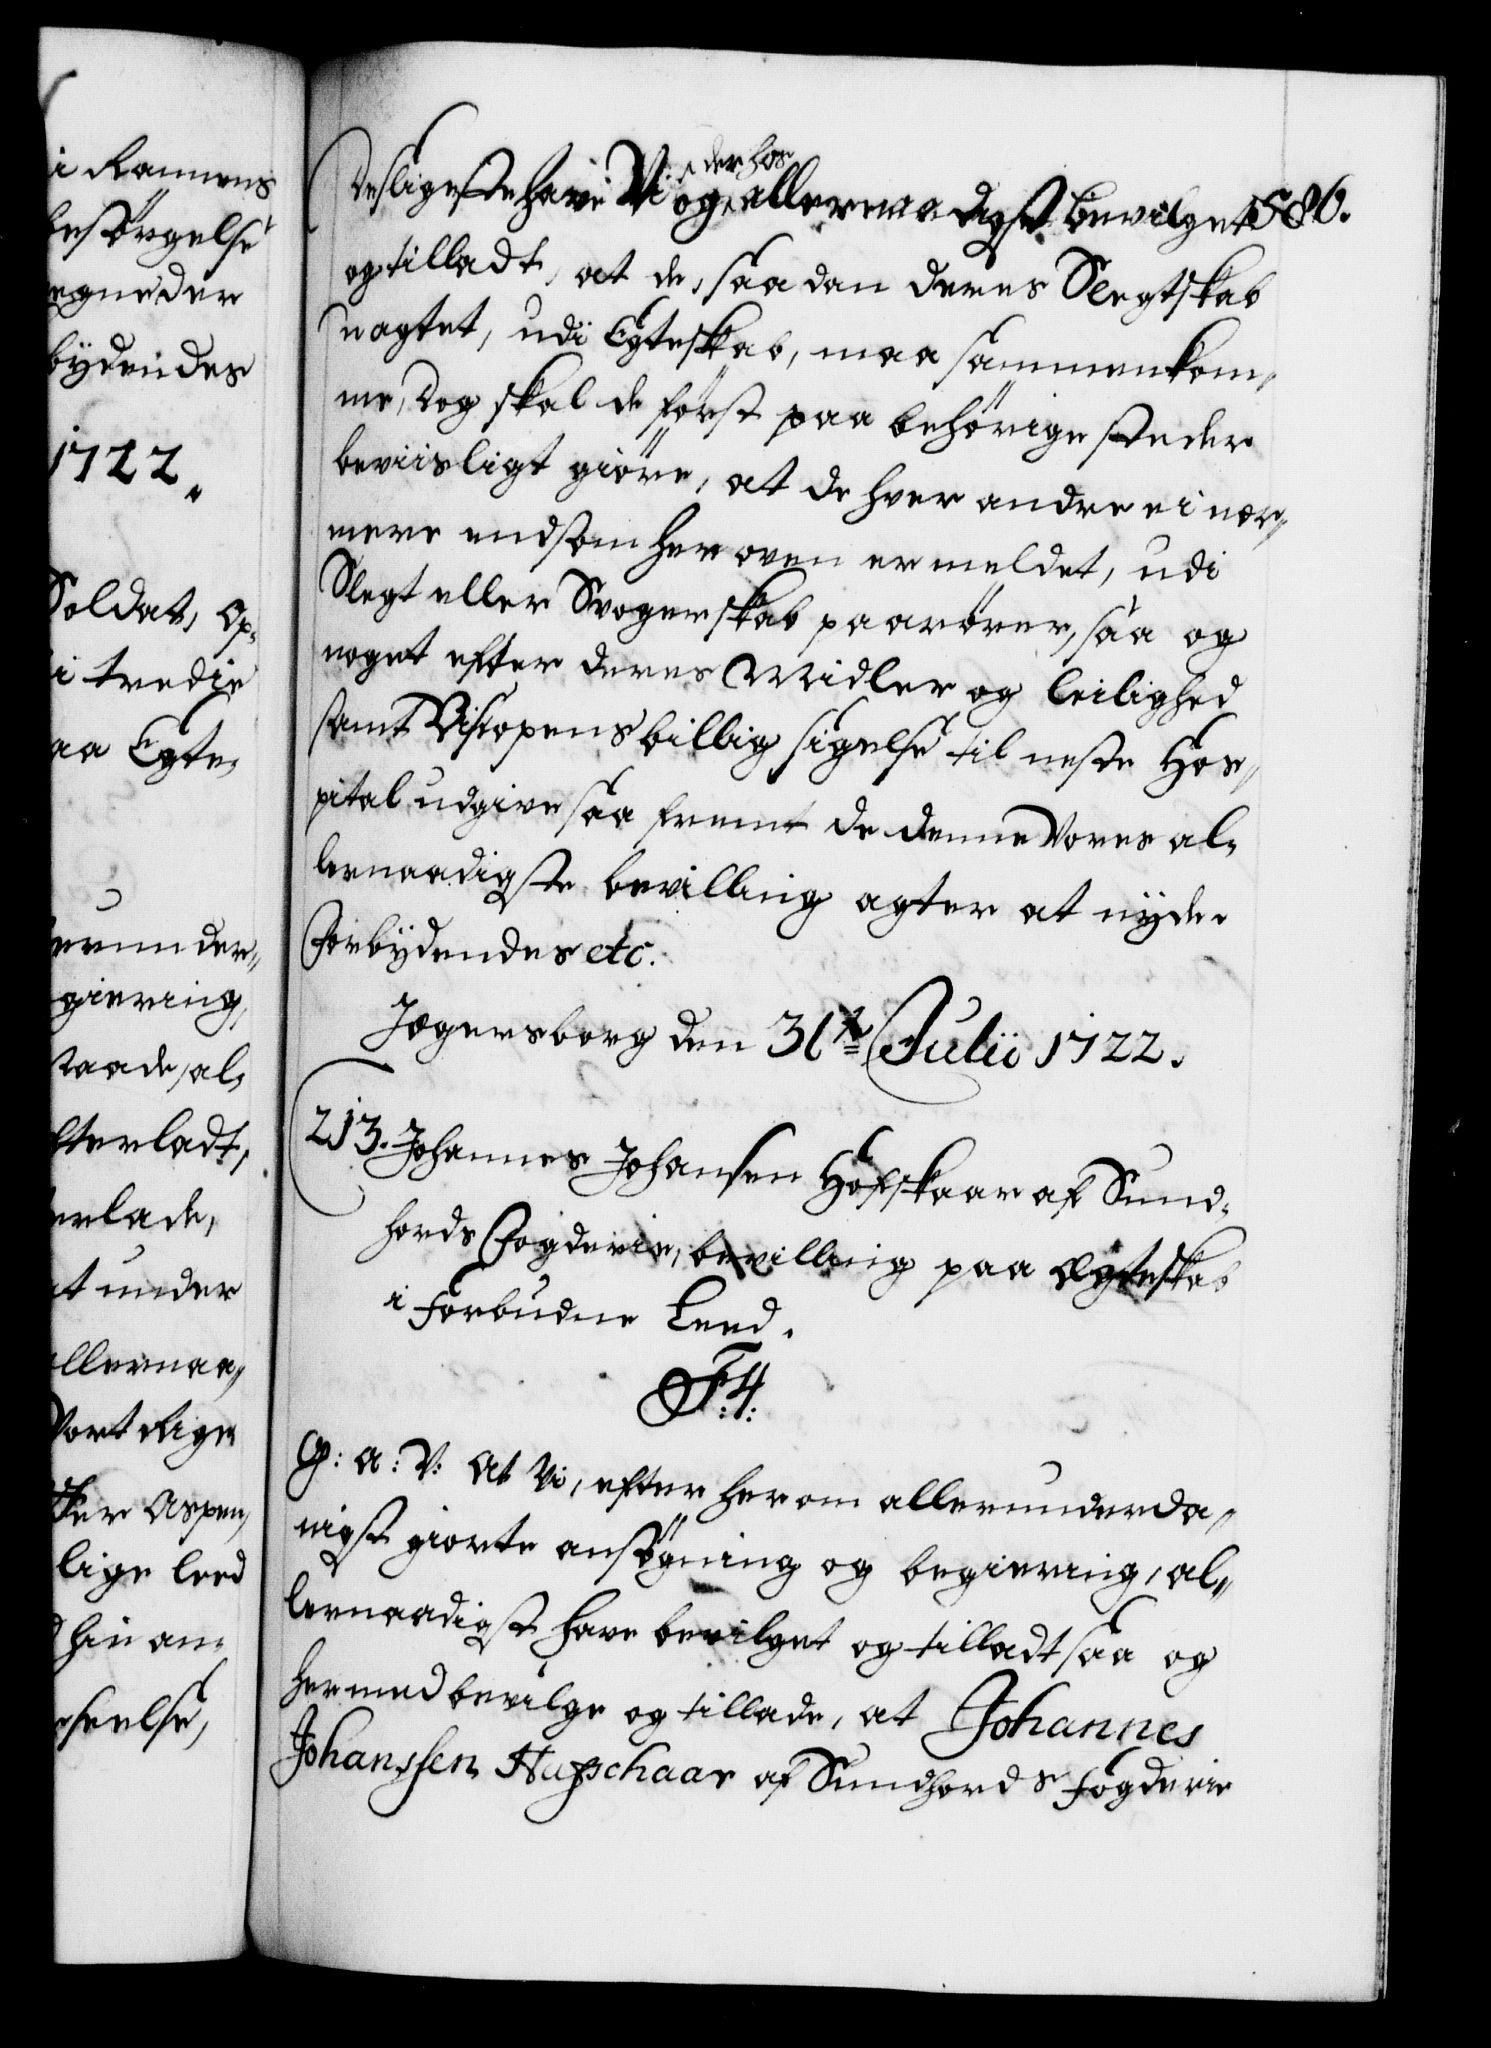 i Kammens
besörgelse
egneder
bÿdendes
1722
Soldat, Op-
i tredje
aa Egte-
erunder-
giering,
raade, al-
terladt,
erlade,
t under
llernaa-
Vort Rige
ter Aspen,
lige leed
hin an-
seelse,
Desligeste have Vi og derhos allernaadigst bevilget 586.
og tilladt, at de, saadan deres Slegtskab
uagtet, udi Egteskab, maa sammenkom-
me, Dog skal de först paa behörige steder
beviisligt giöre, at de hver andre ei nær-
mere end som her oven er meldet, udi
Slegt eller Svogerskab paarörer, saa og
noget efter deres Midler og leilighed
samt Biscopens billig sigelse til neste Hos-
pital udgive saa fremt de denne Vores al-
lernaadigste bevilling agter at nÿde.
Forbÿdendes etc.
Jægersborg den 31te Julii 1722.
213. Johannes Johansen Höfskaar af Sund-
hords Fogderie, bevilling paa Ægteskab
i Forbudne Leed.
F: 4:
G: A: V: At Vi, efter herom allerunderda-
nigst giorte ansögning og begiering, al-
lernaadigst have bevilget og tilladt saa og
hermed bevilge og tillade, at Johannes
Johanssen Hufschaar af Sundhords Fogderie